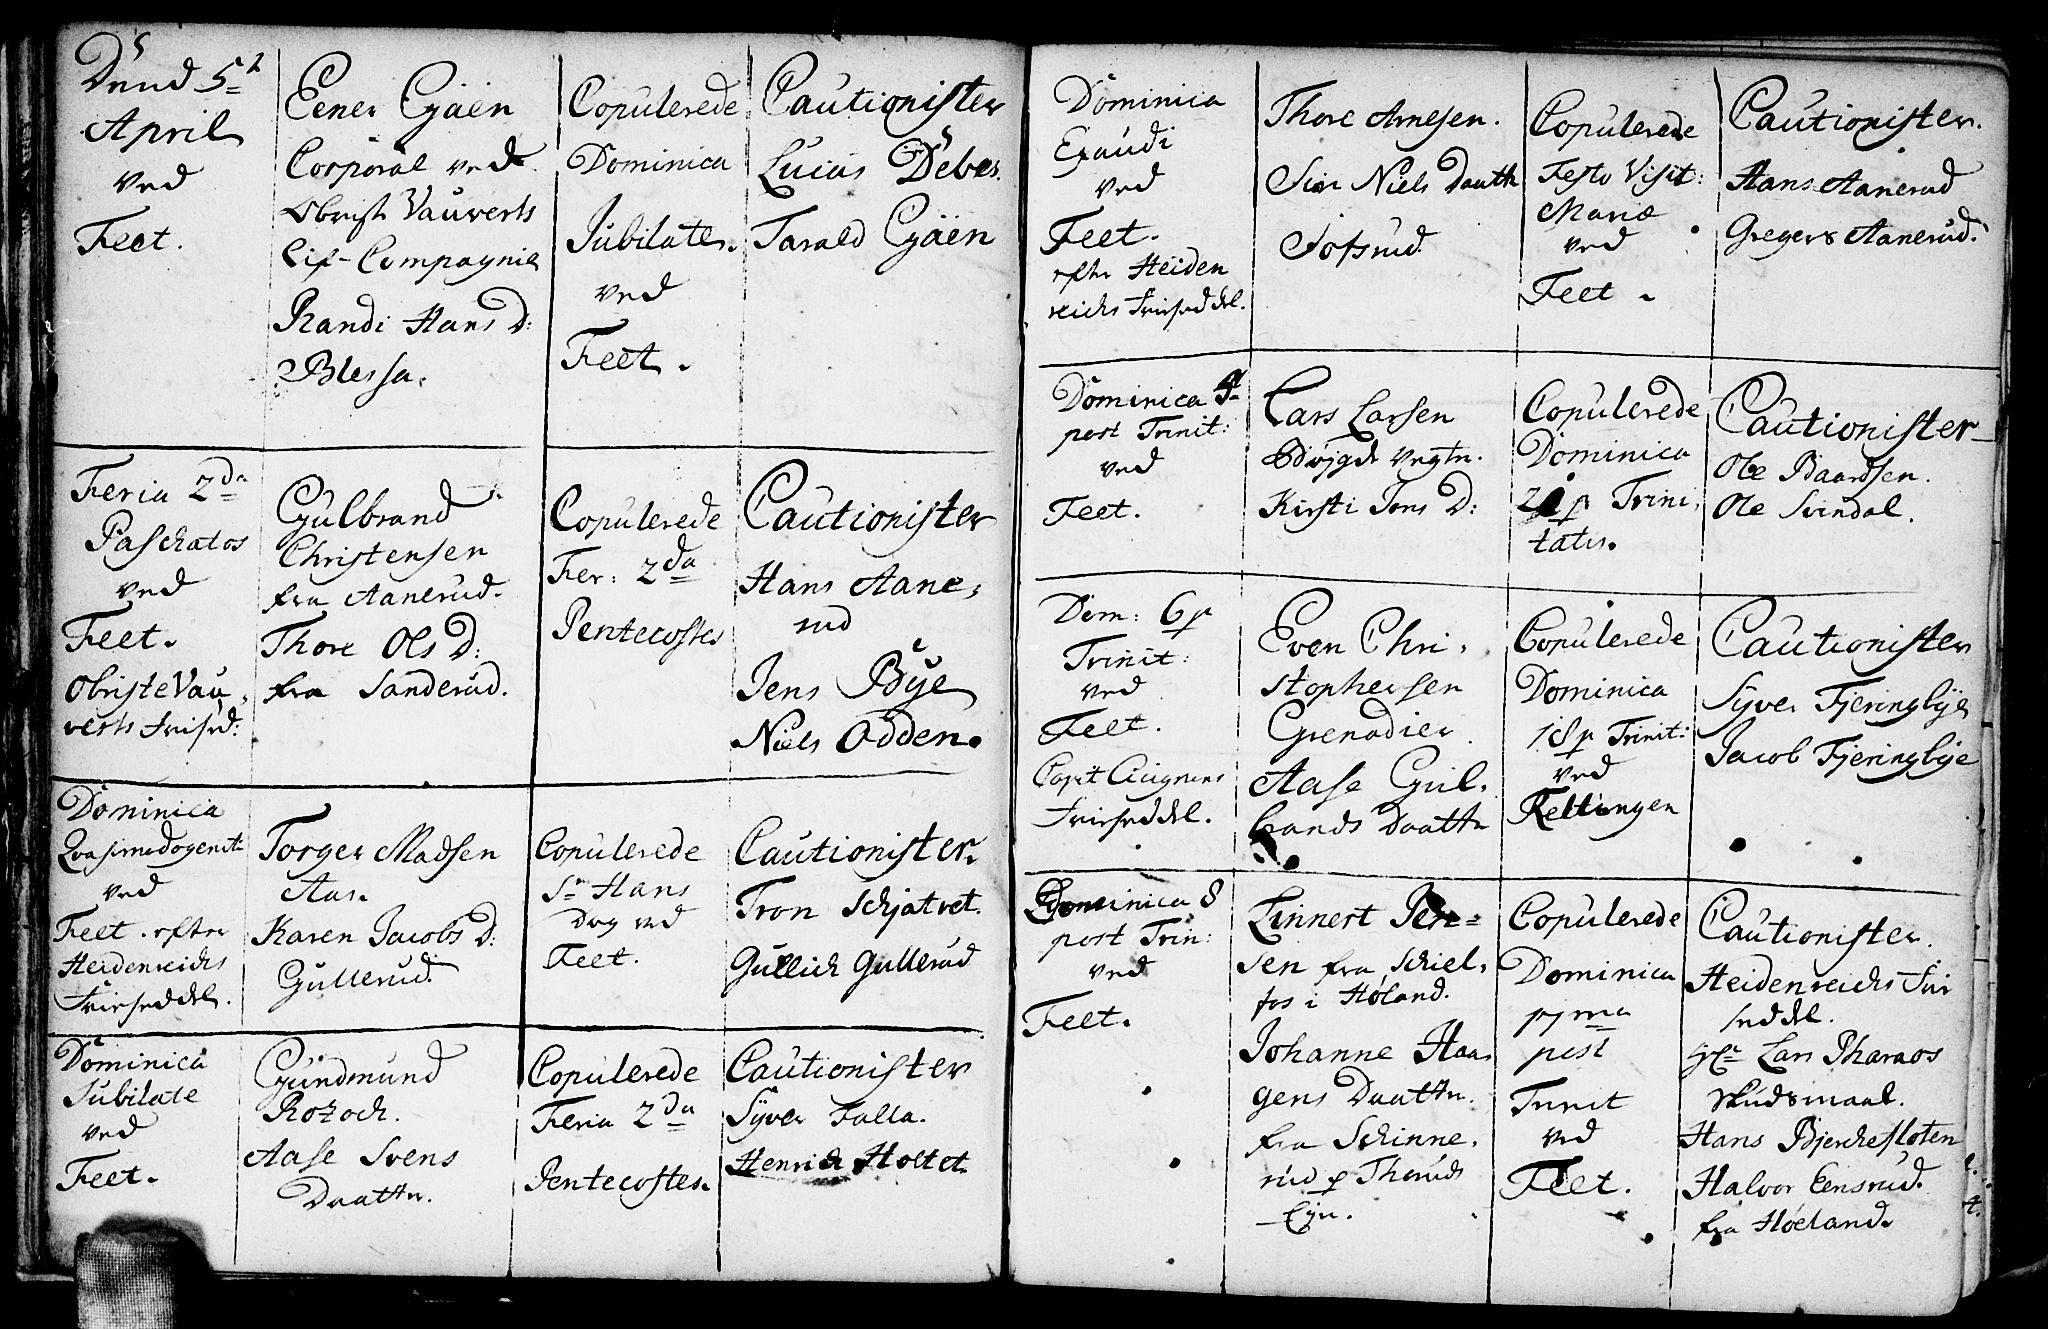 Dend 5te
April
ved
Feet.
Eener Gjäen
Corporal ved
Obrist Vauverts
Lif-Compagnie
Randi Hans D:
Blessa.
Copulerede
Dominica
Jubilate.
ved
Feet.
Cautionister
Lucas Debes.
Tarald Gjäen
Feria 2da
Paschatos
ved
Feet.
Obriste Vau,
verts Frised:
Gulbrand
Christensen
fra Aanerud.
Thore Ols D:
fra Sanderud.
Copulerede
Fer: 2da
Pentecostes
Cautionister
Hans Aane,
rud
Jens Bye
Niels Odden.
Dominica
Qvasimodogenit:
ved
Feet. efter
Heidenreichs
Frieseddel.
Torger Madsen
Aas.
Karen Jacobs D:
Gullerud.
Copulerede
St Hans
Dag ved
Feet.
Cautionister.
Tron Schjatvet.
Gullich Gullerud
Dominica
Jubilate
ved
Feet.
Gundmund
Rozoch.
Aase Svens
Daatter.
Copulerede
Feria 2da
Pentecostes.
Cautionister
Syver Falla.
Henrich Holtet.
Dominica
Exaudi
ved
Feet.
efter Heiden
reichs Frieseddel.
Thore Arnesen.
Siri Niels Daatter
Tofsrud.
Copulerede
Festo Visit:
Mariæ
ved
Feet.
Cautionister.
Hans Aanerud
Gregers Aanerud.
Dominica 4
post Trinit:
ved
Feet.
Lars Larsen
Bøygde Vegter.
Kirsti Tons D:
Copulerede
Dominica
21 p Trini,
tatis.
Cautionister
Ole Baardsen.
Ole Svindal.
Dom: 6 p
Trinit:
ved
Feet.
Capit
Frieseddel.
Even Chri,
stophersen
Grenadier
Aase Gul,
brands Daatter
Copulerede
Dominica
18 p Trinit:
ved
Rellingen
Cautionister
Syver Fjeringbye
Jacob Fjeringbye
Dominica 8
post Trin:
ved
Feet.
Linnert Jen=
sen fra Schiel,
fos i Høland.
Johanne Haa,
gens Daatter.
fra Schinne,
rud p Therud
Eje.
Copulerede
Dominica
pma
post
Trinit
ved
Feet.
Cautionister.
Heidenreichs Fri
seddel.
Hr Lars Pharaos
skudsmaal.
Hans Bjerchesloten
Halvor Eensrud.
fra Høeland.